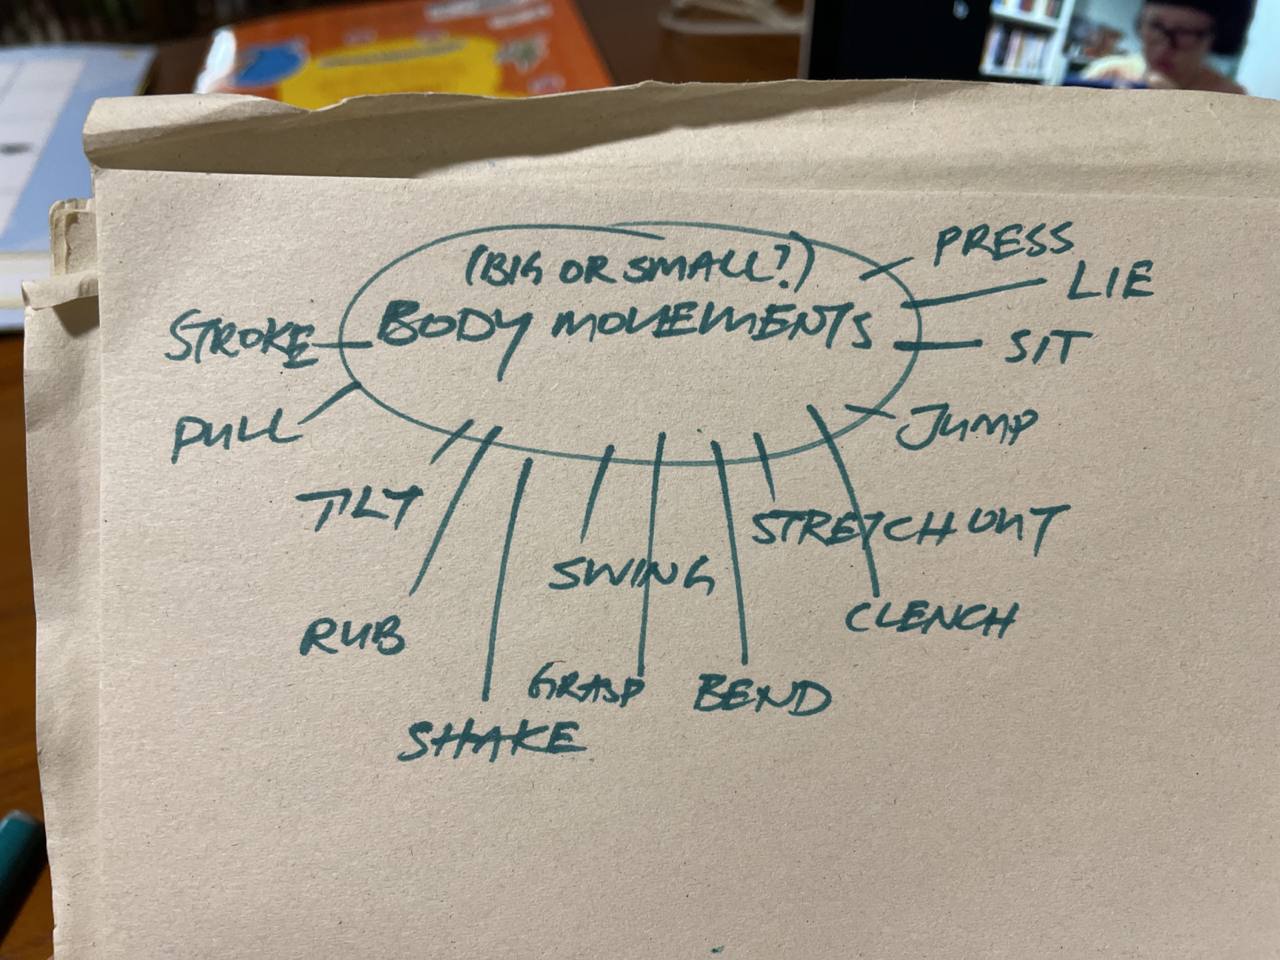 (BIG OR SMALL?)
BODY MOVEMENTS
PRESS
LIE
SIT
JUMP
STRETCH OUT
CLENCH
BEND
GRASP
SWING
SHAKE
RUB
TILT
PULL
STROKE